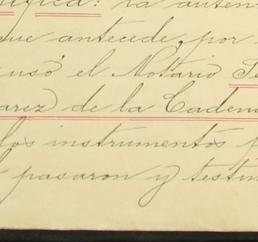 la auten
que antecede, por
usó el Notario
arez de la Caden
los instrumentos
pasaron y testi